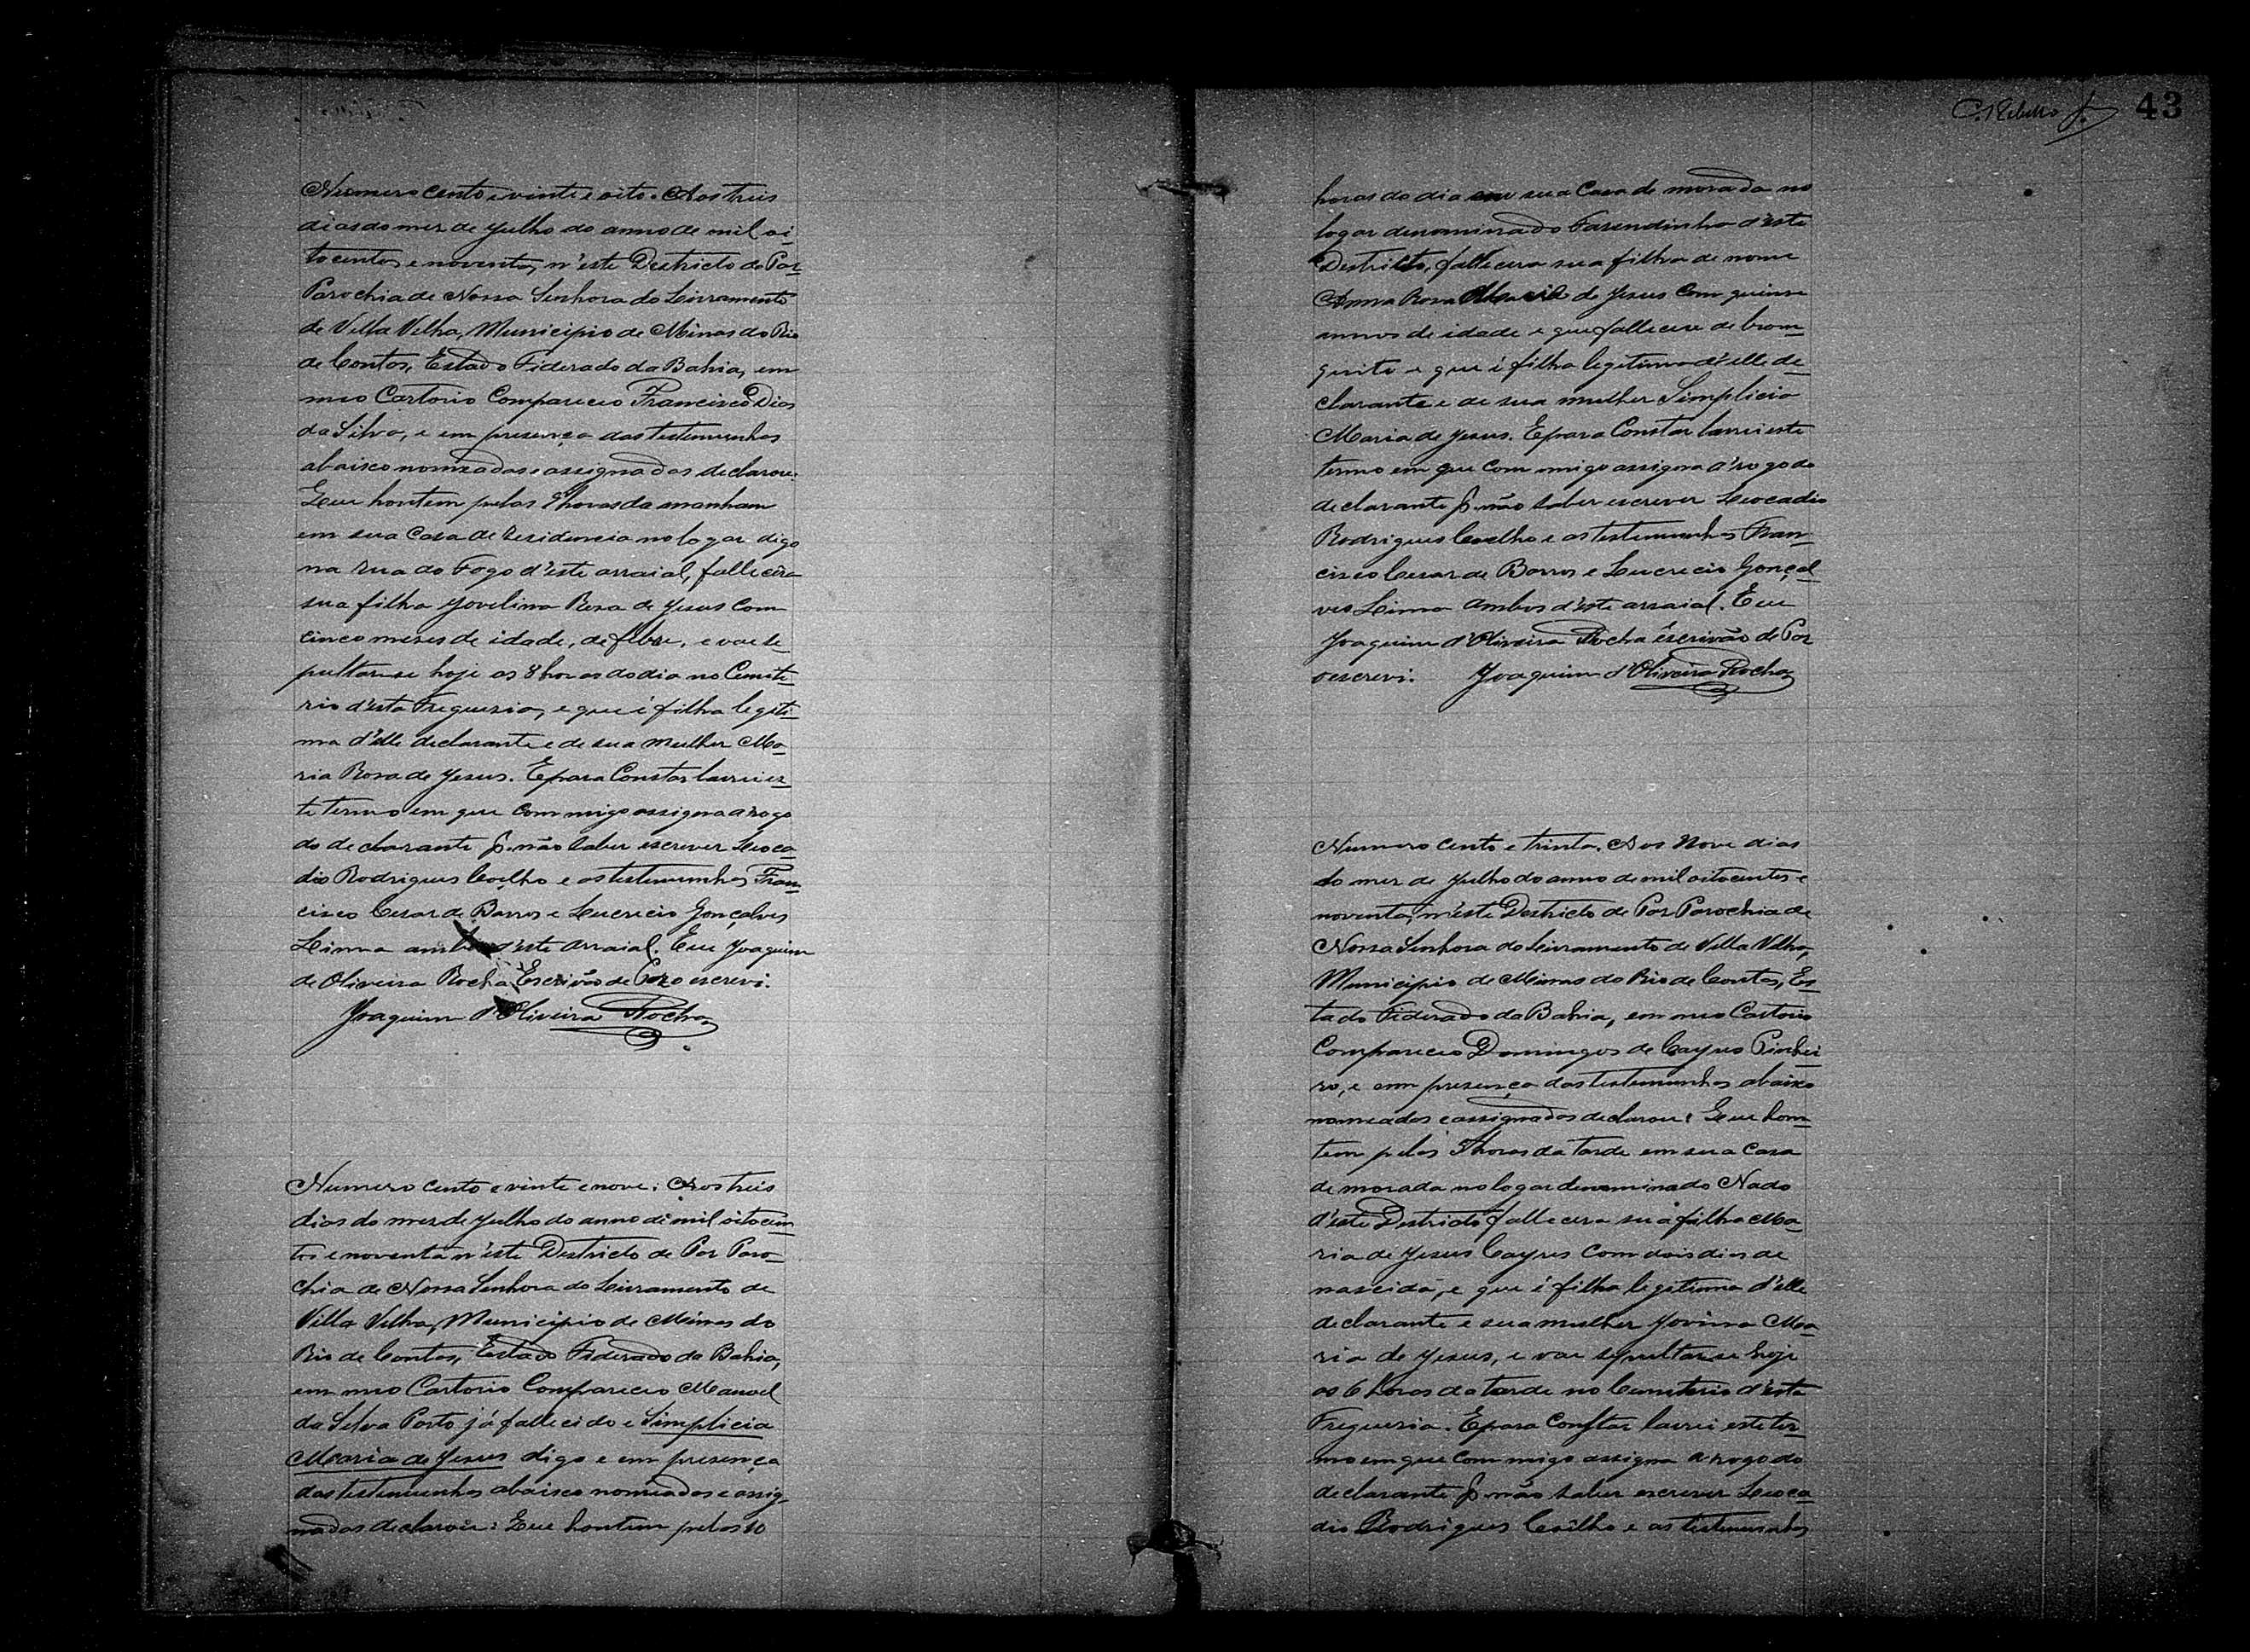 Numero cento e vinte e oito. Aos treis
dias do mez de Julho do anno de mil oi
tocentos e noventa, n'este Destricto de Paz
Parochia de Nossa Senhora do Livramento
de Villa Velha, Municipio de Minas do Rio
de Contas, Estado Federado da Bahia, em
meo Cartorio Compareceo Francisco Dias
da Silva, e em presença das testemunhas
abaixo nomeadas e assignadas declarou:
Que hontem pelas horas da manham
em sua Casa de Residencia no logar digo
na rua do Fogo d'este arraial, fallecêra
sua filha Jovelina Roza de Jesus Com
cinco mezes de idade, de febre, e vae se
pultar-se hoje as 8 horas do dia no Cemite
rio d'esta Freguezia, e que é filha legiti
ma d'elle declarante e de sua mulher Ma
ria Roza de Jesus. E para Constar lavrei es
te termo em que Com migo assigna a rogo
do declarante p. não saber escrever Leoca
dio Rodrigues Coelho e as testemunhas Fran
cisco Cesar de Barros e Lucrecio Gonçalves
Limma ambos d'este arraial. Eu Joaquim
de Oliveira Rocha Escrivão de Paz o escrevi.
Joaquim d'Oliveira Rocha
Numero cento e vinte e nove. Aos treis
dias do mez de Julho do anno de mil oitocen
tos e noventa n'este Destricto de Paz Paro
chia de Nossa Senhora do Livramento de
Villa Velha, Municipio de Minas do
Rio de Contas, Estado Federado da Bahia,
em meo Cartorio Compareceo Manoel
da Silva Porto já fallecido e Simplicia
Maria de Jesus digo e em presença
das testemunhas abaixo nomeadas e assig
nadas declarou: Que hontem pelas 10
C. Rebello Jr. 43
horas do dia em sua Casa de morada no
logar denominado Fasendinha d'este
Destricto, fallecera sua filha de nome
Anna Roza Maria de Jesus Com quinse
annos de idade e que fallecera de bron
quite e que é filha legitima d'elle de
clarante e de sua mulher Simplicia
Maria de Jesus. E para Constar lavrei este
termo em que Com migo assigna a rogo do
declarante p. não saber escrever Leocadio
Rodrigues Coelho e as testemunhas Fran
cisco Cesar de Barros e Lucrecio Gonçal
ves Limma ambos d'este arraial. Eu
Joaquim d'Oliveira Rocha escrivão de Paz
o escrevi. Joaquim d'Oliveira Rocha
Numero cento e trinta. Aos Nove dias
do mez de Julho do anno de mil oitocentos e
noventa, n'este Destricto de Paz Parochia de
Nossa Senhora do Livramento de Villa Velha,
Municipio de Minas do Rio de Contas, Es
tado Federado da Bahia, em meo Cartorio
Compareceo Domingos de Cayres Pinhei
ro, e em presença das testemunhas abaixo
nomeadas e assignadas declarou: Que hon
tem pelas horas da tarde em sua Casa
de morada no logar denominado Nado
d'este Destricto fallecera sua filha Ma
ria de Jesus Cayres Com dois dias de
nascida, e que é filha legitima d'elle
declarante e sua mulher Jovina Ma
ria de Jesus, e vae sepultar-se hoje
as 6 horas da tarde no Cemiterio d'esta
Freguezia. E para Constar lavrei este ter
mo em que Com migo assigna a rogo do
declarante p. não saber escrever Leoca
dio Rodrigues Coêlho e as testemunhas